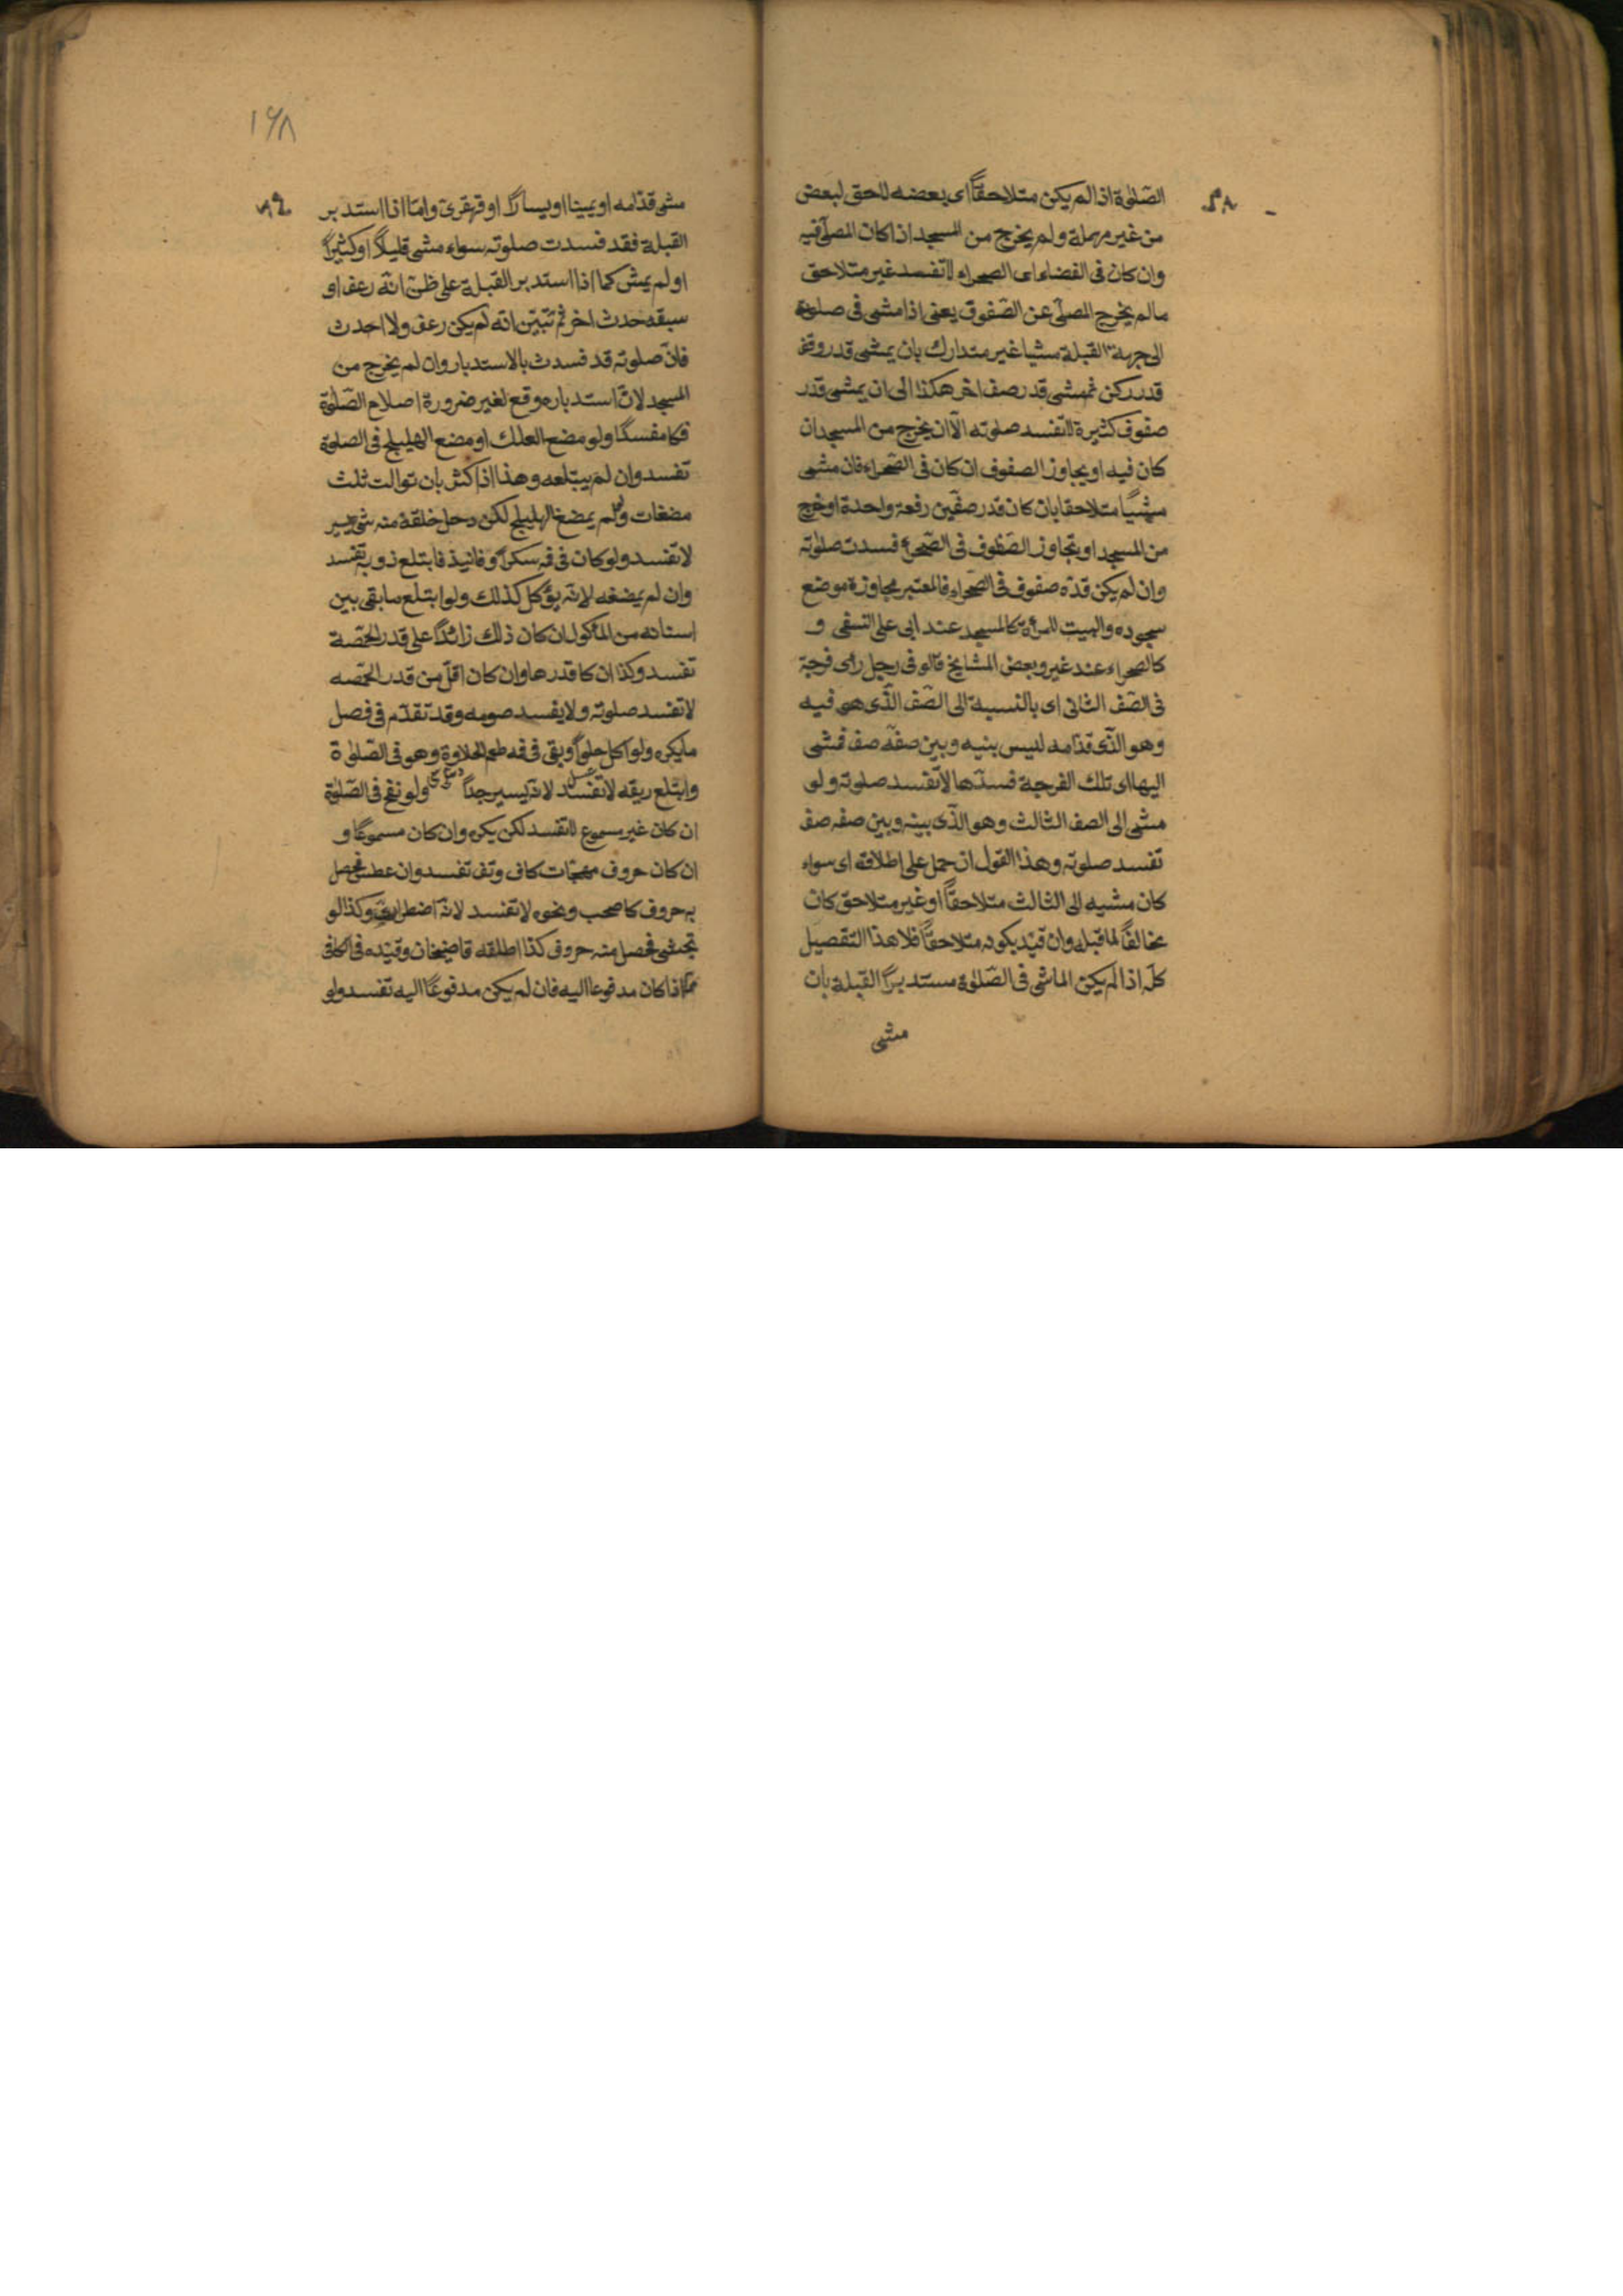 الصّلوٰة اذا لم يكن متلاحقًا اى بعضه لاحق لبعض
من غير مهملة ولم يخرج من المسجد اذا كان المصلّى فيه
وان كان فى الفضاء اى الصحراء لا تفسد غير متلاحق
مالم يخرج المصلّى عن الصّفوف يعنى اذا مشى فى صلوته
الى جهة القبلة مشيا غير متدارك بان يمشى قدر وقف
قدر ركن ثم مشى قدر صف اخر هكذا الى ان يمشى قدر
صفوف كثيرة لا تفسد صلوته الّا ان يخرج من المسجد ان
كان فيه او يجاوز الصفوف ان كان فى الصّحراء فان مشى
مشيًا متلاحقا بان كان قدر صفّين رفعة واحدة او خرج
من المسجد او تجاوز الصّفوف فى الصّحراء فسدت صلوٰته
وان لم يكن قدّه صفوف فى الصّحراء فالمعتبر مجاوزة موضع
سجوده والبيت للمرأة كالمسجد عند ابى على النسفى و
كالصحراء عند غير وبعض المشايخ قالو فى رجل راى فرجة
فى الصّف الثانى اى بالنسبة الى الصّف الّذى هو فيه
وهو الّذى قدّامه ليس بنيه وبين صفّه صف فمشى
اليها اى تلك الفرجة فسدّها لا تفسد صلوته ولو
مشى الى الصف الثالث وهو الّذى بينه وبين صفه صف
تفسد صلوته وهذا القول ان حمل على اطلاقه اى سواء
كان مشيه الى الثالث متلاحقًا او غير متلاحق كان
مخالفًا لما قبله وان قيّد بكونه متلاحقًا فلا هذا التفصيل
كلّه اذا لم يكن الماشى فى الصّلوٰة مستدبرًا القبلة بان
مشى
١٦٨
مشى قدّامه او يمينا او يسارًا او قهقرىٰ وامّا اذا استدبر
القبلة فقد فسدت صلوته سواء مشى قليلًا او كثيرًا
او لم يمش كما اذا استدبر القبلة على ظنّ انّه رعف او
سبقه حدث اخر ثم تبيّن انّه لم يكن رعف ولا احدث
فانّ صلوته قد فسدت بالاستدبار وان لم يخرج من
المسجد لانّ استدباره وقع لغير ضرورة اصلاح الصّلوٰة
فكا مفسدًا ولو مضع العلك او مضع الهليلج فى الصلوة
تفسد وان لم يبتلعه وهذا اذا كثر بان توالت ثلث
مضغات ولو لم يمضغ الهليلج لكن دخل خلقه منه شئ يسير
لا تفسد ولو كان فى فه سكرًا وفانيذ فابتلع ذوبه تفسد
وان لم يمضغه لانّه يؤكل كذلك ولو ابتلع ما بقى بين
اسنانه من المأكول ان كان ذلك زائدًا على قدر الحمّصة
تفسد وكذا ان كا قدرها وان كان اقلّ من قدر الحمّصه
لا تفسد صلوته ولا يفسد صومه وقد تقدّم فى فصل
ما يكره ولو اكل حلوًا وبقى فى فه طعم الحلاوة وهو فى الصّلوٰة
وابتلع ريقه لا تفسد لانّه يسير جدًا ولو نفخ فى الصّلوٰة
ان كان غير مسموع لا تفسد لكن يكره وان كان مسموعًا و
ان كان حروف مهجّات كاف وتف تفسد وان عطس فحصل
به حروف كاصحب ونحوه لا تفسد لانّه اضطرارىّ وكذا لو
تجشى فحصل منه حروف كذا اطلقه قاضيخان وقيّده فى الكافى
بما اذا كان مدفوعا اليه فان لم يكن مدفوعًا اليه تفسد ولو